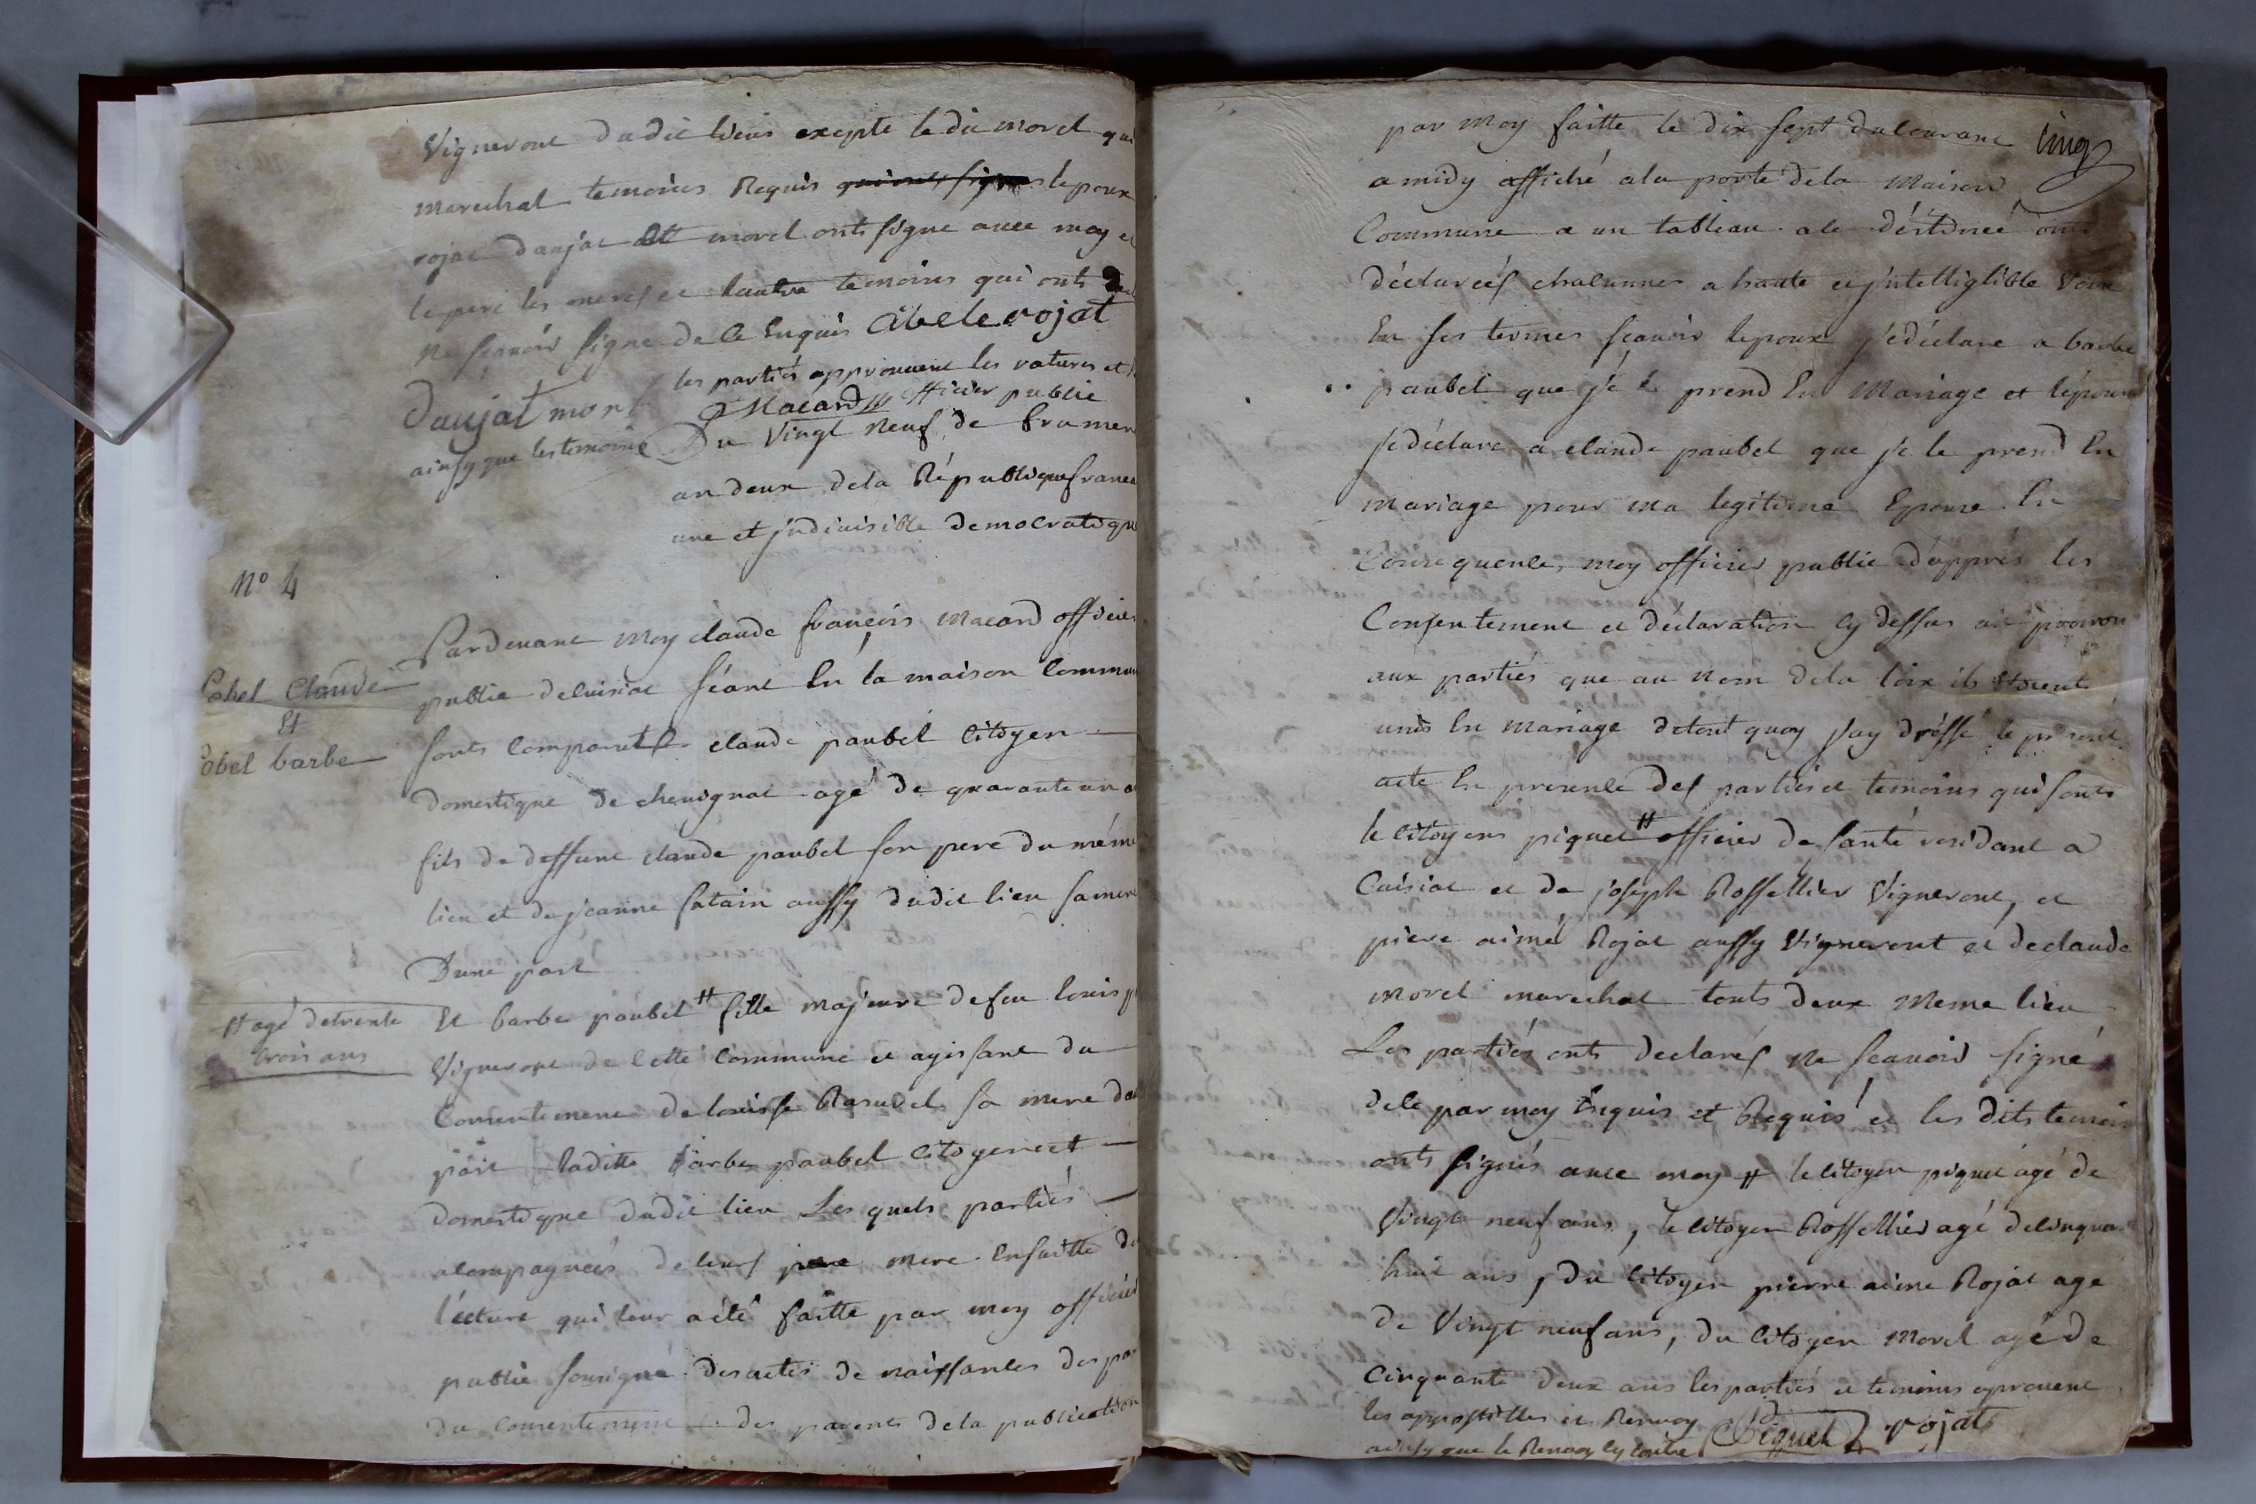 Vigneront dudit lieus exepte le dit morel qui
marechal temoins Requis lepoux
rojat daujat Et morel onts signe avec moy et
le pere les meres et lautre temoins qui onts
ne scavoir signe de ce Enquis Abele rojat
les partiés approuvent les ratures et
daujat morel C f Macard officier public
ainsy que les temoins
Du Vingt neuf de brumer
an deux dela Républiquefrancs
une et jndivisible democratique
N° 4
Pardevant moy claude françois Macard officier
public decuisiat séant En la maison Commune
pobel Claude
Et
pobel barbe
sonts Comparut claude paubel Citoyen
domestique de chevignat agé de quarante un a
fils de deffunt claude paubel son pere du méme
lieu et de jeanne satain aussy dudit lieu sa mere
Dune part
# agé detrente
trois ans
Et barbe paubel # fille majeure defeu louis p
Vigneront de Cette Commune et agissant du
Consentement de louisse Rasurel sa mere dau
part ladite barbe paubel Citoyene et
domestique dudit lieu Les quels partiés
acompagneés de leurs mere Ensuitte de
lécture qui leur a été faitte par moy officier
public sousigné des actes de naissances des par
du consentement des parents dela publication
par moy faitte le dix sept ducourant cinq
a midy affiché ala porte dela Maison
Commune a un tableau a ce déstinéé onts
déclareés chacunnes a haute et jntelligiblible Voix
En ses termes scavoir lepoux jédéclare a barbe
paubel que jé la prend En Mariage et lépouse
jedéclare a claude paubel que je le prend En
mariage pour ma legitime Epoux En
Conséquence, moy officier public d'apprés les
Consentement et déclaration Cy dessus ai prononcé
aux partiés que au nom dela loix ils étoient
unis En mariage detout quoy jay dréssé le présent
acte En presence des partiés et temoins qui sonts
le citoyens piquet # officier de santé residant a
Cuisiat et de joseph Rossellier Vigneront, et
piere aimé Rojat aussy Vigneront et declaude
morel marechal touts deux meme lieu
Les partiés onts declarés ne scavoir signé
dece par moy Enquis et Requis et les dits temoins
onts signés avec moy # le citoyen piquet agé de
Vingt neuf ans, le citoyen Rossellier agé decinquante
huit ans, du Citoyen pierre aimé Rojat agé
de Vingt neuf ans, du Citoyen Morel agé de
Cinquante deux ans les partiés et temoins aprouvent
les appostilles et Renvoy Piquet rojat
ainsy que le Renvoy cy contre